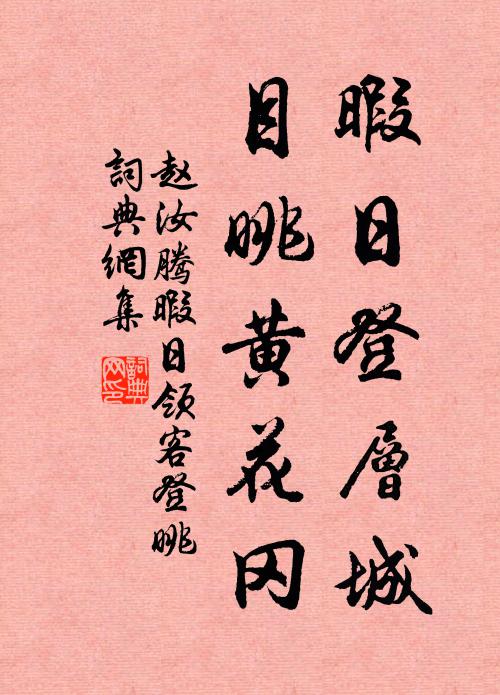 暇日登層城
目眺黄花冈
赵汝騰暇日领客登眺
詞典網集
詞典网印